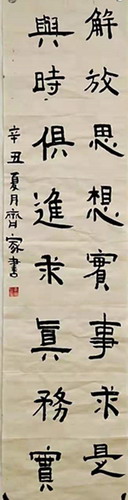 解放思想實事求是
與時俱進求真務實
辛丑夏月齊家書